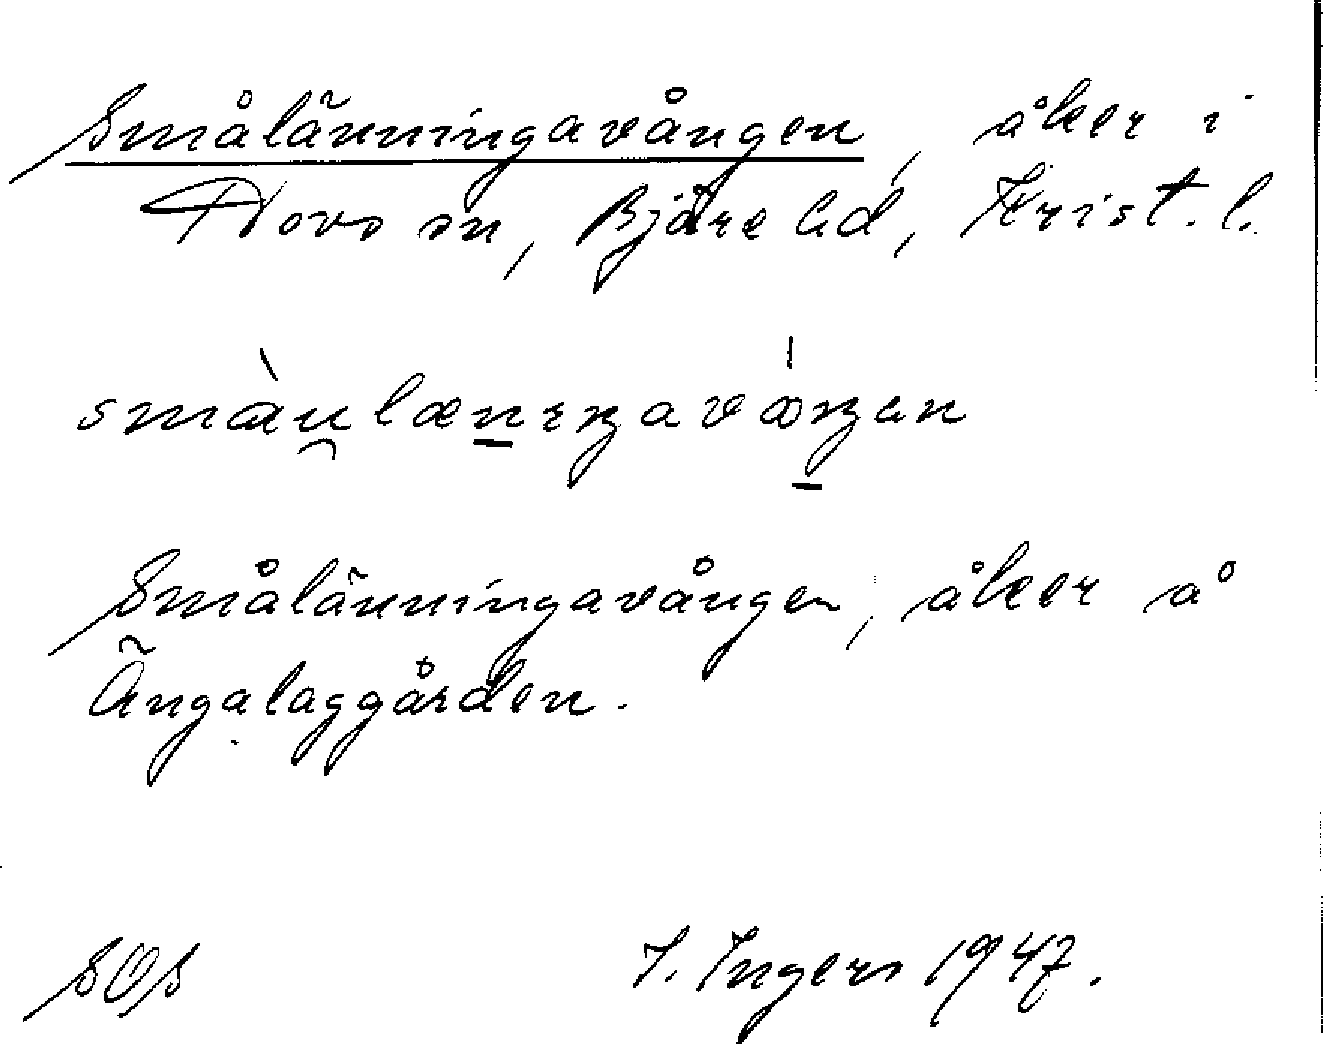 Smålänningavången, åker i
Hovs sn, Bjäre hd, Krist. l.
smàu̯lænıŋavɑ́ŋen
Smålänningavången, åker å
Ängalaggården.
SOS I. Ingers 1947.